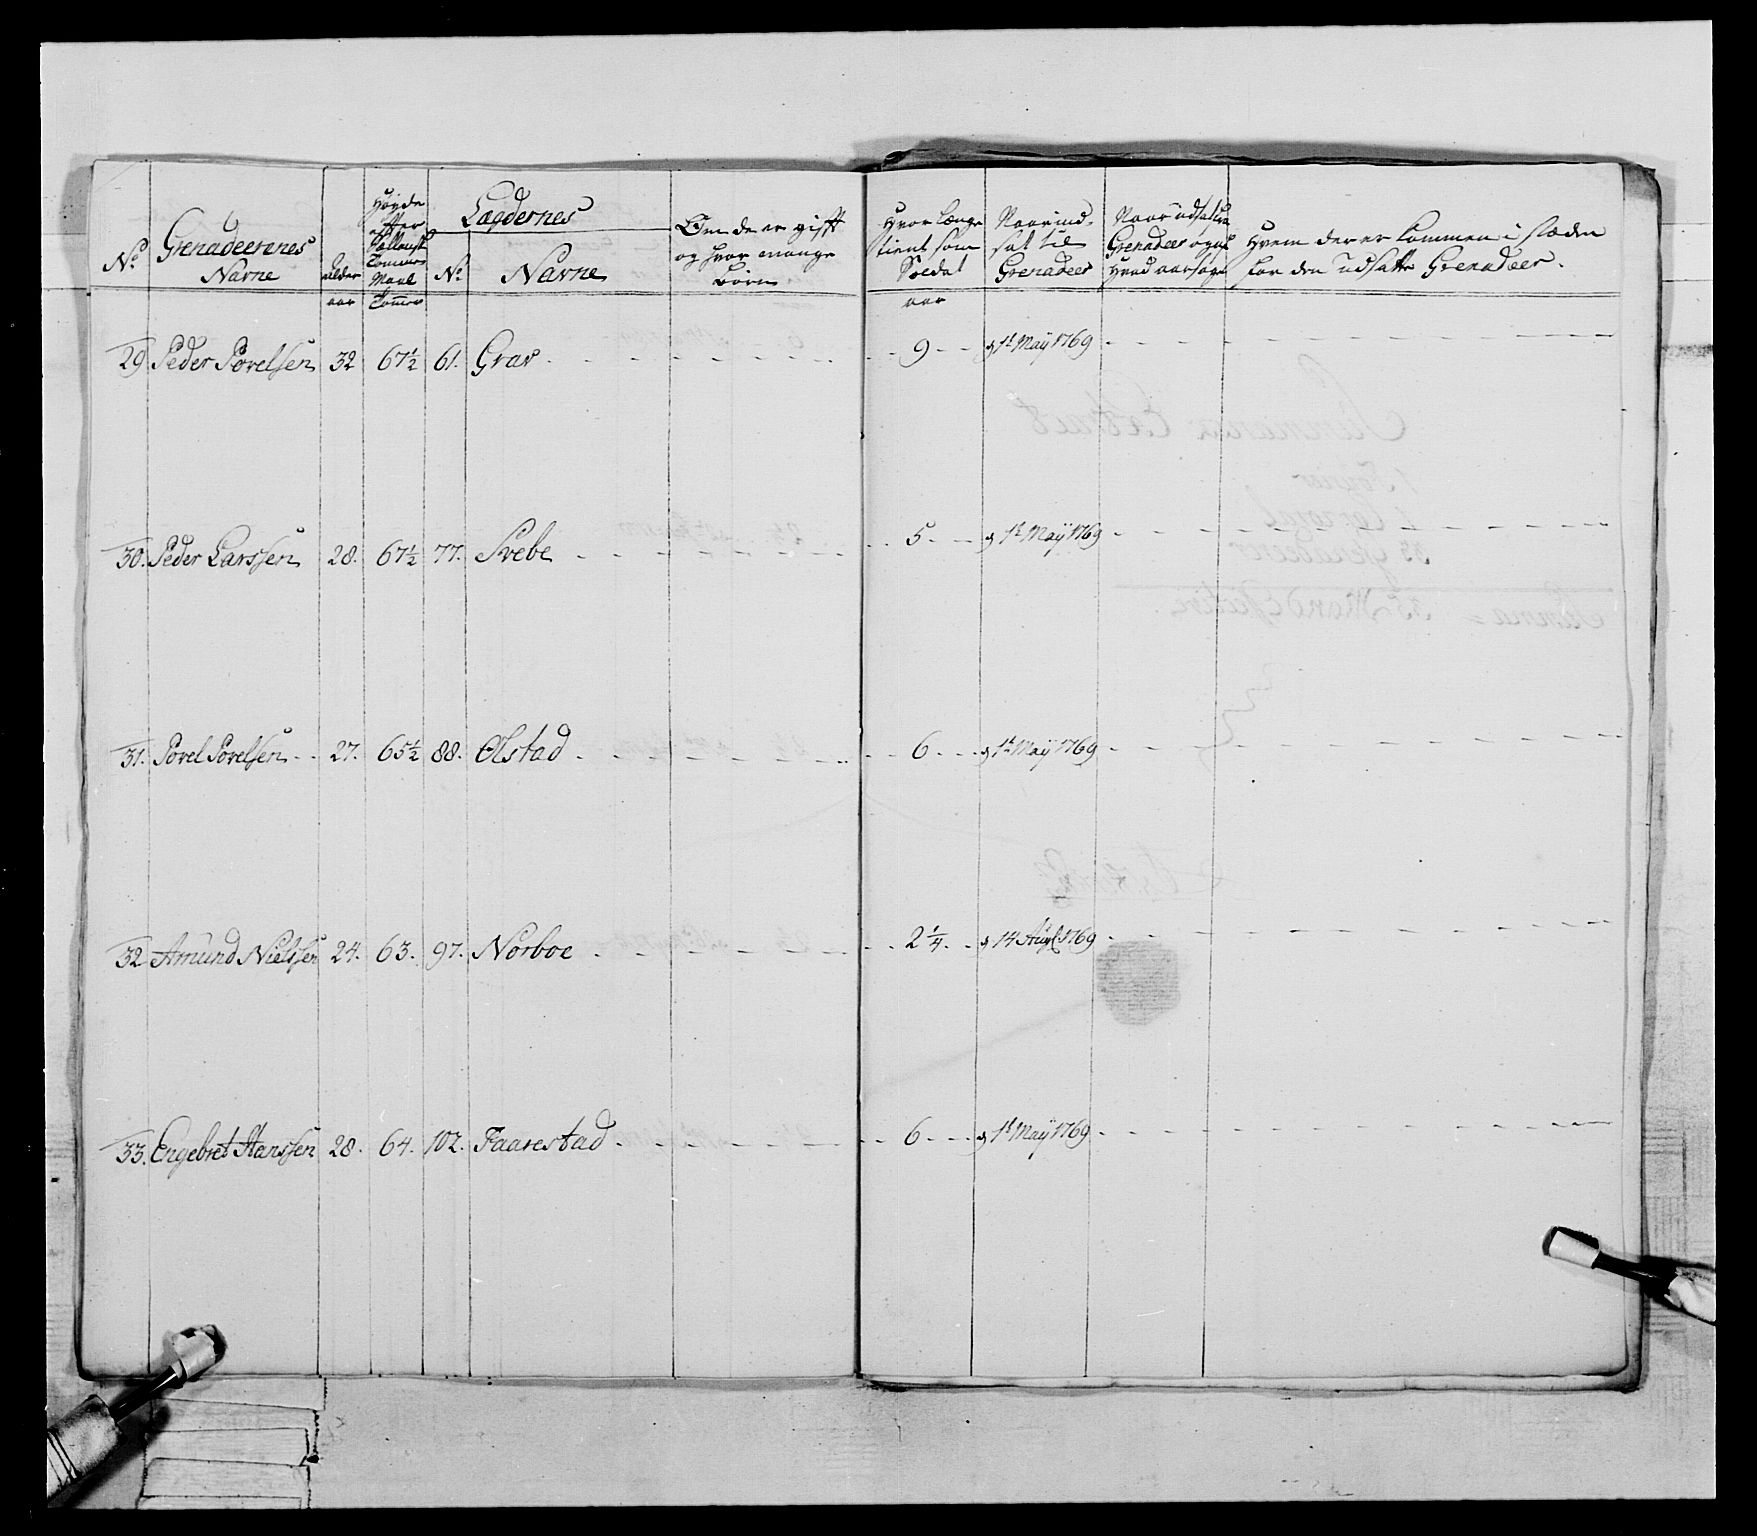 No
Grenadeerenes
Navne
alder
aar
Høyde
efter
Sællandsk
Tommer
Maal
Tommer
Lægdernes
No
Navne
Om de er gift
og hvor mange
Børn
Hvor længe
tient som
Soldat
aar
Naar ind-
sat til
Grenadeer
Naar udsat
Grenadeer og af
Hvad aarsage
Hvem der er kommen i stæden
for den Udsatte Grenadeer.
29. Peder Povelsen 32 67½ 61. Grav - - 9 - - d 1t May 1769
30. Peder Larssen 28. 67½ 77. Svebe - - 5 - - d 1t May 1769
31. Povel Povelsen - - 27. 65½ 88. Ølstad - - 6 - - d 1t May 1769
32 Amund Nielssen 24. 63. 97. Norboe - - 2¼ - - d 14 Augt 1769
33. Engebret Hanssen 28. 64. 102. Faarestad - - 6 - - d 1t May 1769